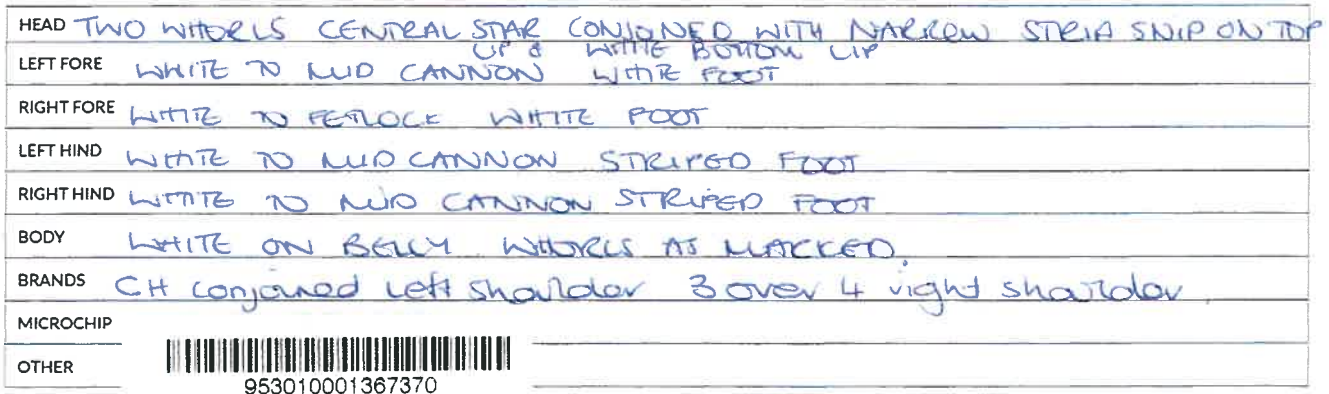 HEAD TWO WHORLS CENTRAL STAR CONJOINED WITH NARROW STRIP SNIP ON TOP
LIP & WHITE BOTTOM LIP
LEFT FORE WHITE TO MID CANNON WHITE FOOT
RIGHT FORE WHITE TO FETLOCK WHITE FOOT
LEFT HIND WHITE TO MID CANNON STRIPED FOOT
RIGHT HIND WHITE TO MID CANNON STRIPED FOOT
BODY WHITE ON BELLY WHORLS AS MARKED.
BRANDS CH conjoined Left shoulder 3 over 4 right shoulder.
MICROCHIP
OTHER
953010001367370